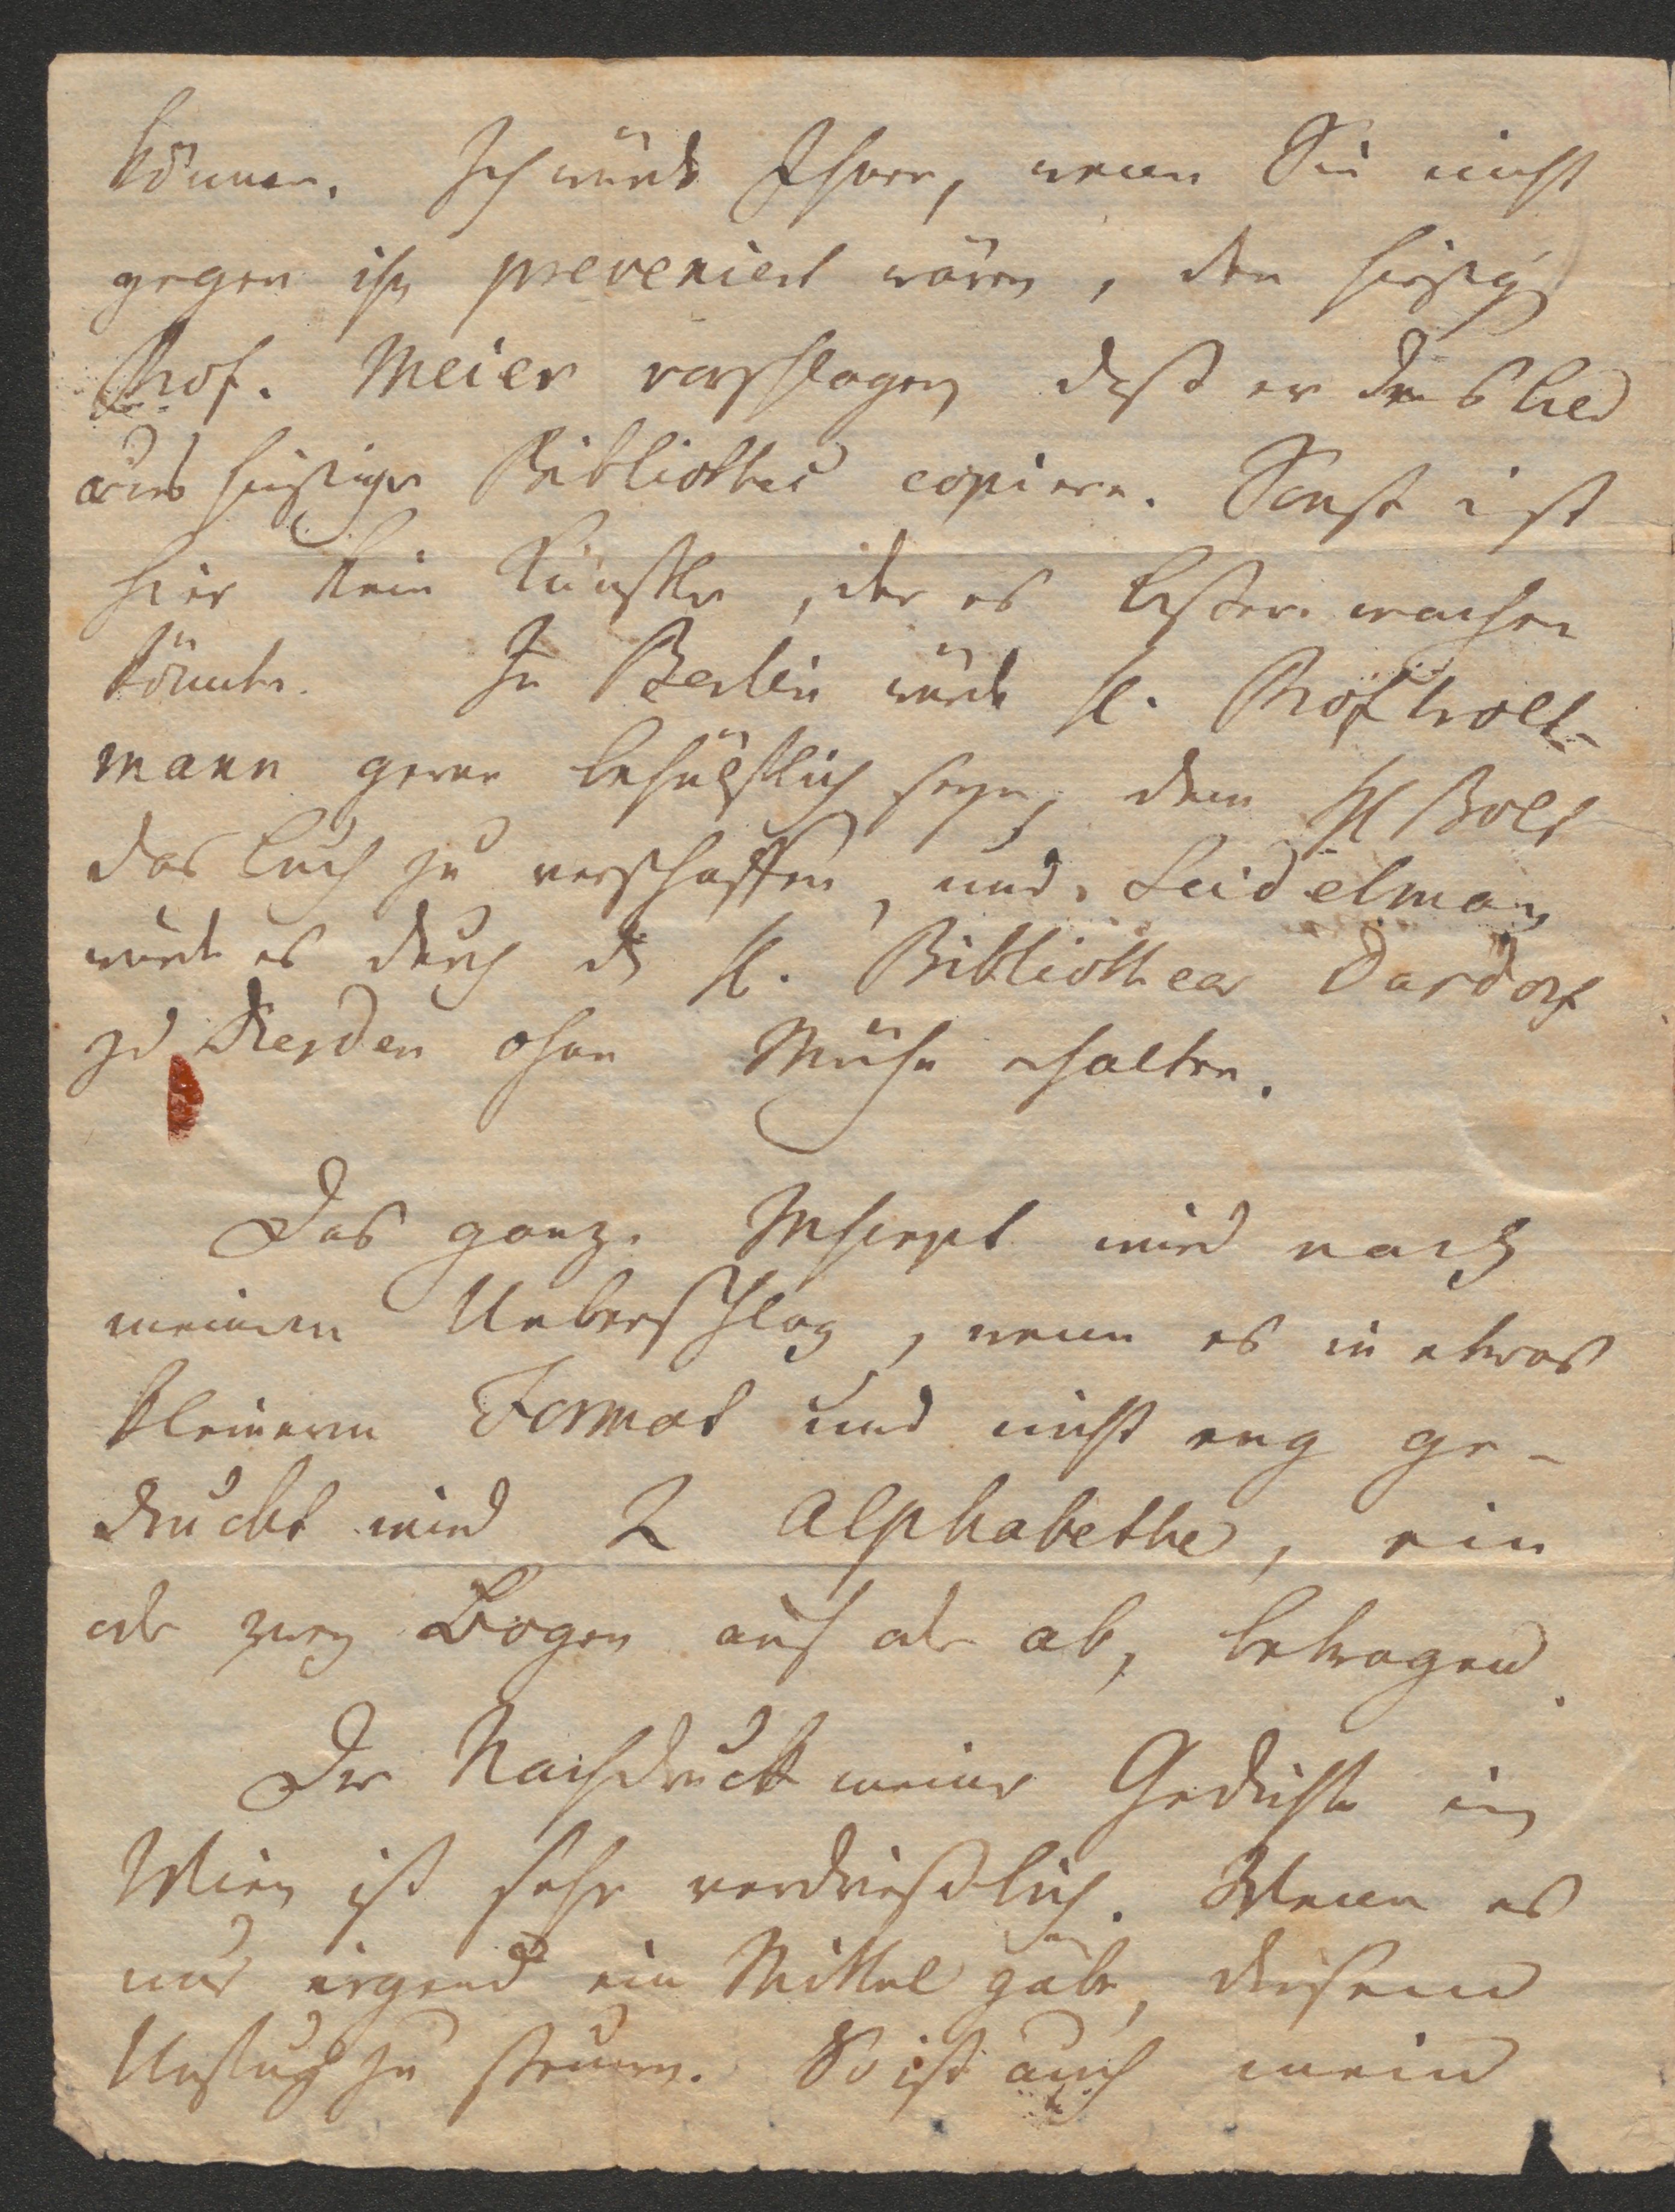 können. Ich würde Ihnen, wenn Sie nicht
gegen ihn preveniert wären, den hiesigen
Prof. Meier vorschlagen daß er das Bild
aus hiesiger Bibliothec copiere. Sonst ist
hier kein Künstler, der es besser machen
könnte. In Berlin würde H. Prof Wolt-
mann gerne behülflich seyn, dem H Bolt
das Buch zu verschaffen, und Seidelman
würde es durch den H. Bibliothecar Dasdorf
zu Dresden ohne Mühe erhalten.
Das ganze Mscrpt wird nach
meinem Ueberschlag, wenn es in etwas
kleinerm Format und nicht eng ge-
druckt wird 2 Alphabethe, ein
oder zwey Bogen auf oder ab, betragen.
Der Nachdruck meiner Gedichte in
Wien ist sehr verdrießlich. Wenn es
nur irgend ein Mittel gäbe, diesem
Unfug zu steuern. So ist auch mein